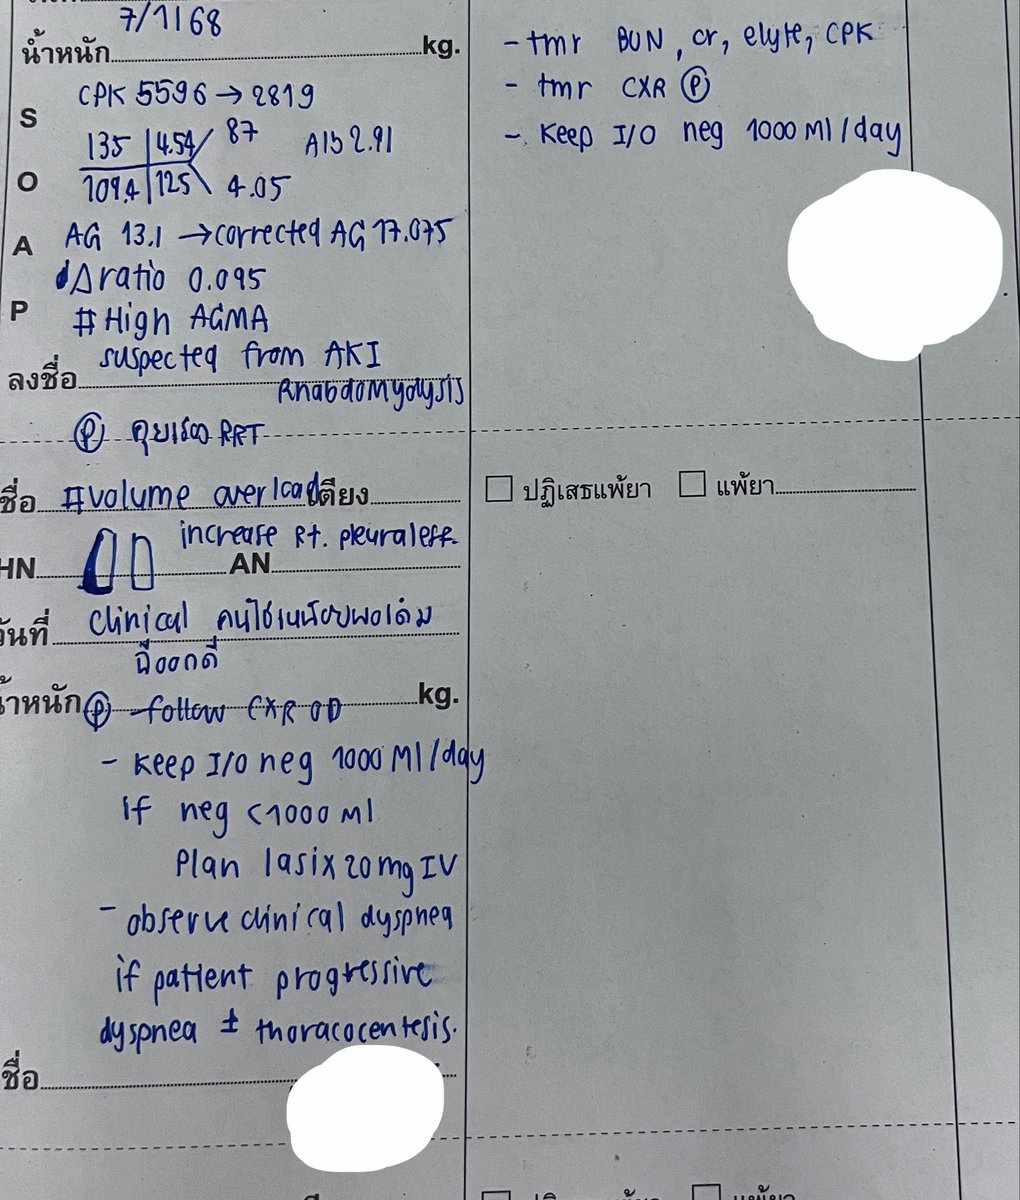 7/1/68
น้ำหนัก kg.
S
O
A
P
CPK 5596 → 2819
135 4.54 87 Alb 2.91
109.4 125 4.05
AG 13.1 → corrected AG 17.075
Δ ratio 0.095
# High AGMA
suspected from AKI
Rhabdomyolysis
ลงชื่อ
Ⓟ คุยเรื่อง RRT
- tmr BUN, cr, elyte, CPK
- tmr CXR Ⓟ
- Keep I/O neg 1000 Ml/day
ชื่อ # volume overload เตียง
increase Rt. pleural eff.
HN AN
วันที่ clinical คนไข้เหนื่อยพอเดิม
ฉี่ออกดี
น้ำหนัก kg.
Ⓟ - follow CXR OD
- Keep I/O neg 1000 Ml/day
if neg <1000 Ml
Plan lasix 20 mg IV
- observe clinical dyspnea
if patient progressive
dyspnea ± thoracocentesis.
ชื่อ
☐ ปฏิเสธแพ้ยา ☐ แพ้ยา